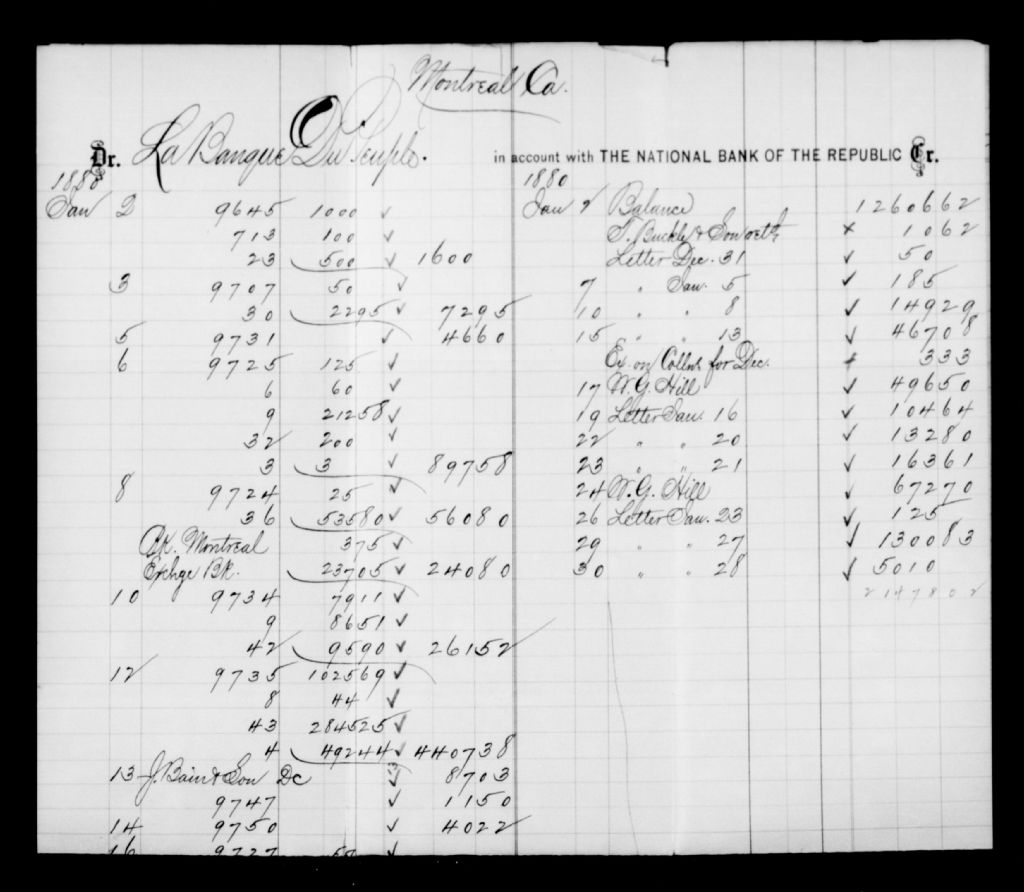 Montreal Ca.
Dr. La Banque Du Peuple. in account with THE NATIONAL BANK OF THE REPUBLIC Cr.
1880 1880
Jan 2 9645 1000 ✓ Jan 2 Balance 1260662
713 100 ✓ T. Buckle & Son x 1062
23 500 ✓ 1600 Letter Dec. 31 ✓ 50
3 9707 50 ✓ 7 " Jan. 5 ✓ 185
30 2295 ✓ 7295 10 " " 8 ✓ 14929
5 9731 ✓ 4660 15 " " 13 ✓ 46708
6 9725 125 ✓ Ex on Collns for Dec. x 333
6 60 ✓ 17 W. G. Hill ✓ 49650
9 21258 ✓ 19 Letter Jan. 16 ✓ 10464
32 200 ✓ 22 " " 20 ✓ 13280
3 3 ✓ 89758 23 " " 21 ✓ 16361
8 9724 25 ✓ 24 W. G. Hill ✓ 67270
36 53580 ✓ 56080 26 Letter Jan. 23 ✓ 125
Bk. Montreal 375 ✓ 29 " " 27 ✓ 130083
Exchge Bk. 23705 ✓ 24080 30 " " 28 ✓ 5010
10 9734 7911 ✓ 2147802
9 8651 ✓
42 9590 ✓ 26152
12 9735 102569 ✓
8 44 ✓
43 284525 ✓
4 49244 ✓ 440738
13 J. Bain & Son Dc ✓ 8703
9747 ✓ 1150
14 9750 ✓ 4022
16 9727 50 ✓